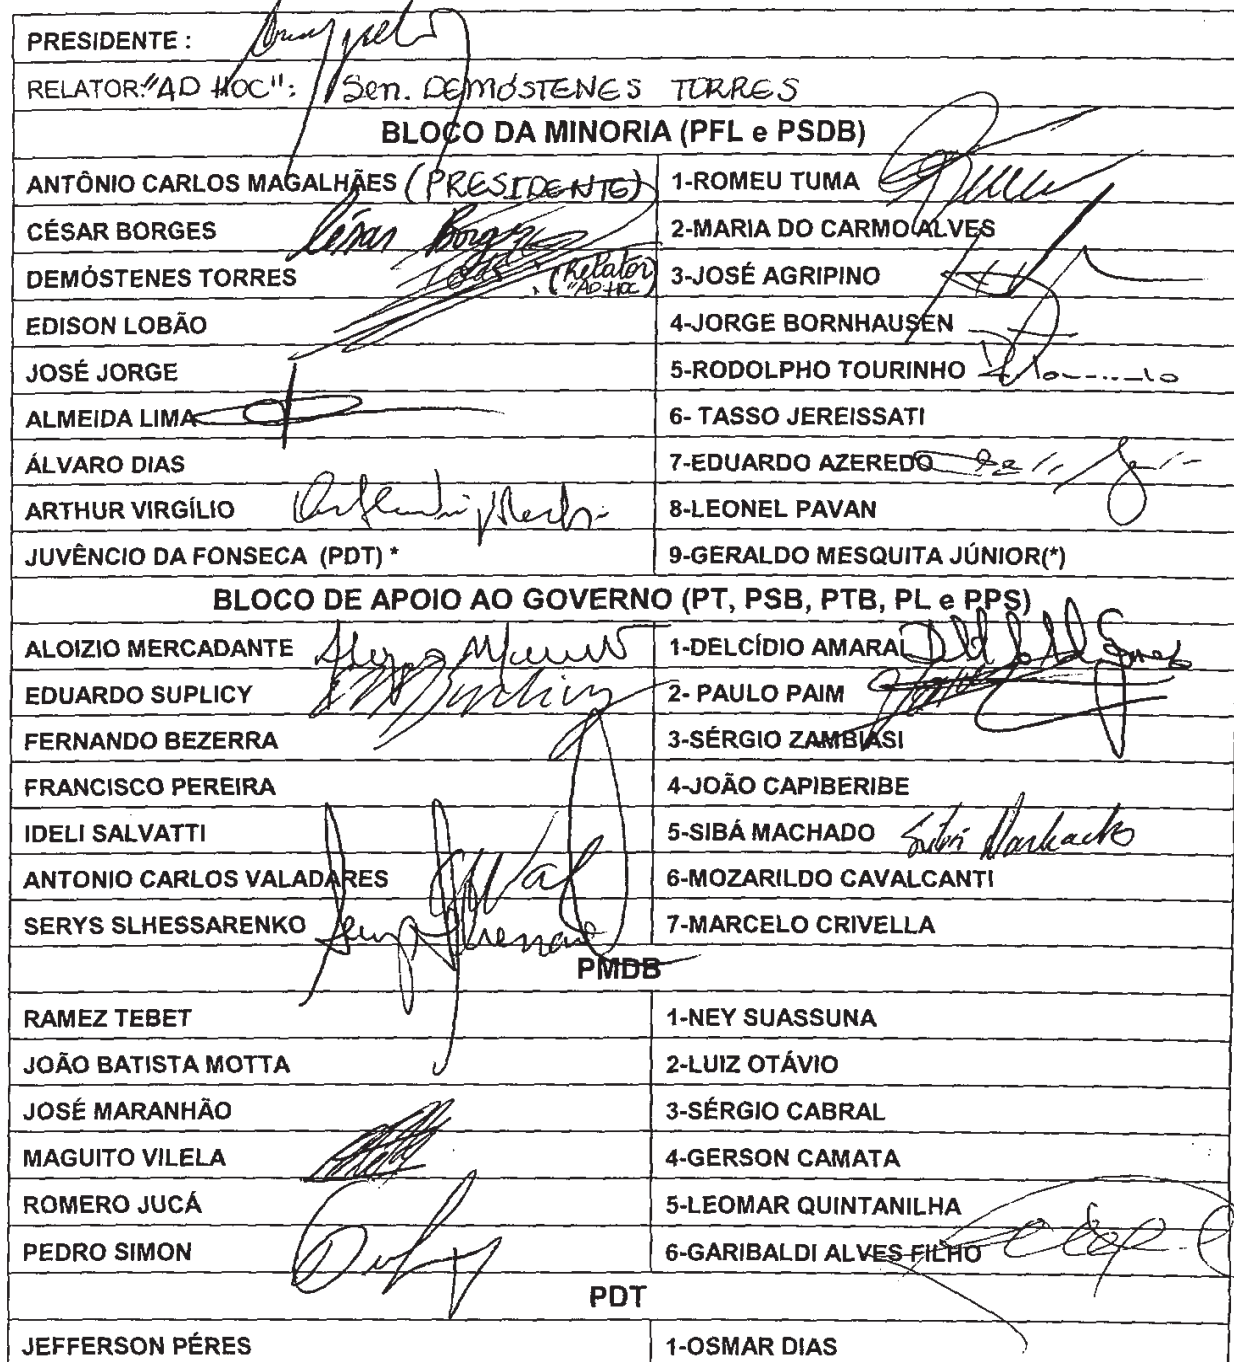 PRESIDENTE :
RELATOR "AD HOC": Sen. DEMÓSTENES TORRES
BLOCO DA MINORIA (PFL e PSDB)
ANTÔNIO CARLOS MAGALHÃES (PRESIDENTE) 1-ROMEU TUMA
CÉSAR BORGES César Borges 2-MARIA DO CARMO ALVES
DEMÓSTENES TORRES (Relator "AD HOC") 3-JOSÉ AGRIPINO
EDISON LOBÃO 4-JORGE BORNHAUSEN
JOSÉ JORGE 5-RODOLPHO TOURINHO
ALMEIDA LIMA 6- TASSO JEREISSATI
ÁLVARO DIAS 7-EDUARDO AZEREDO
ARTHUR VIRGÍLIO 8-LEONEL PAVAN
JUVÊNCIO DA FONSECA (PDT) * 9-GERALDO MESQUITA JÚNIOR(*)
BLOCO DE APOIO AO GOVERNO (PT, PSB, PTB, PL e PPS)
ALOIZIO MERCADANTE 1-DELCÍDIO AMARAL
EDUARDO SUPLICY 2- PAULO PAIM
FERNANDO BEZERRA 3-SÉRGIO ZAMBIASI
FRANCISCO PEREIRA 4-JOÃO CAPIBERIBE
IDELI SALVATTI 5-SIBÁ MACHADO Sibá Machado
ANTONIO CARLOS VALADARES 6-MOZARILDO CAVALCANTI
SERYS SLHESSARENKO 7-MARCELO CRIVELLA
PMDB
RAMEZ TEBET 1-NEY SUASSUNA
JOÃO BATISTA MOTTA 2-LUIZ OTÁVIO
JOSÉ MARANHÃO 3-SÉRGIO CABRAL
MAGUITO VILELA 4-GERSON CAMATA
ROMERO JUCÁ 5-LEOMAR QUINTANILHA
PEDRO SIMON 6-GARIBALDI ALVES FILHO
PDT
JEFFERSON PÉRES 1-OSMAR DIAS